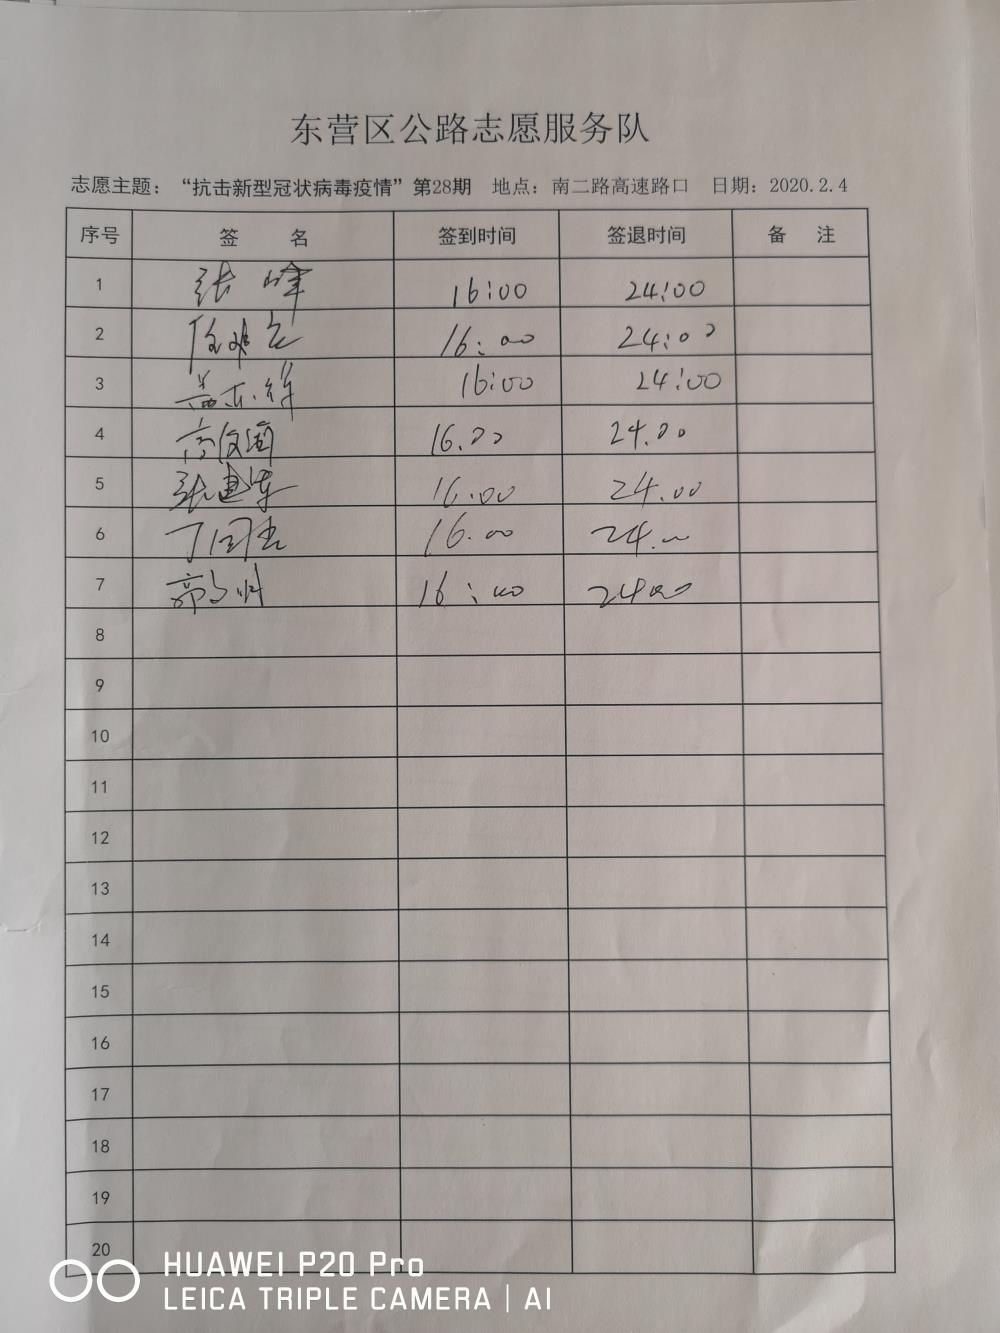 东营区公路志愿服务队
志愿主题：“抗击新型冠状病毒疫情”第28期 地点：南二路高速路口 日期：2020.2.4
序号 签 名 签到时间 签退时间 备 注
1 张峰 16:00 24:00
2 16:00 24:00
3 16:00 24:00
4 16.00 24.00
5 张建军 16.00 24.00
6 16.00 24.00
7 16:00 2400
8
9
10
11
12
13
14
15
16
17
18
19
20
HUAWEI P20 Pro
LEICA TRIPLE CAMERA | AI